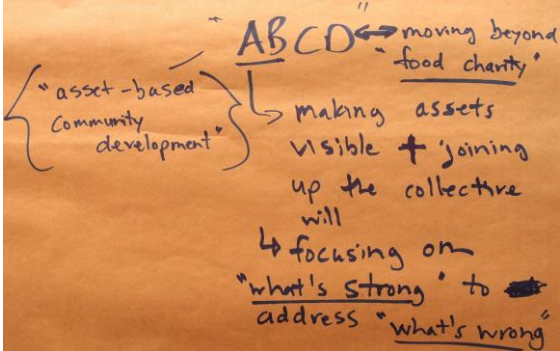 "ABCD" ↔ moving beyond
"food charity"
{"asset-based
community
development"}
↳ making assets
visible + joining
up the collective
will
↳ focusing on
"what's strong" to
address "what's wrong"